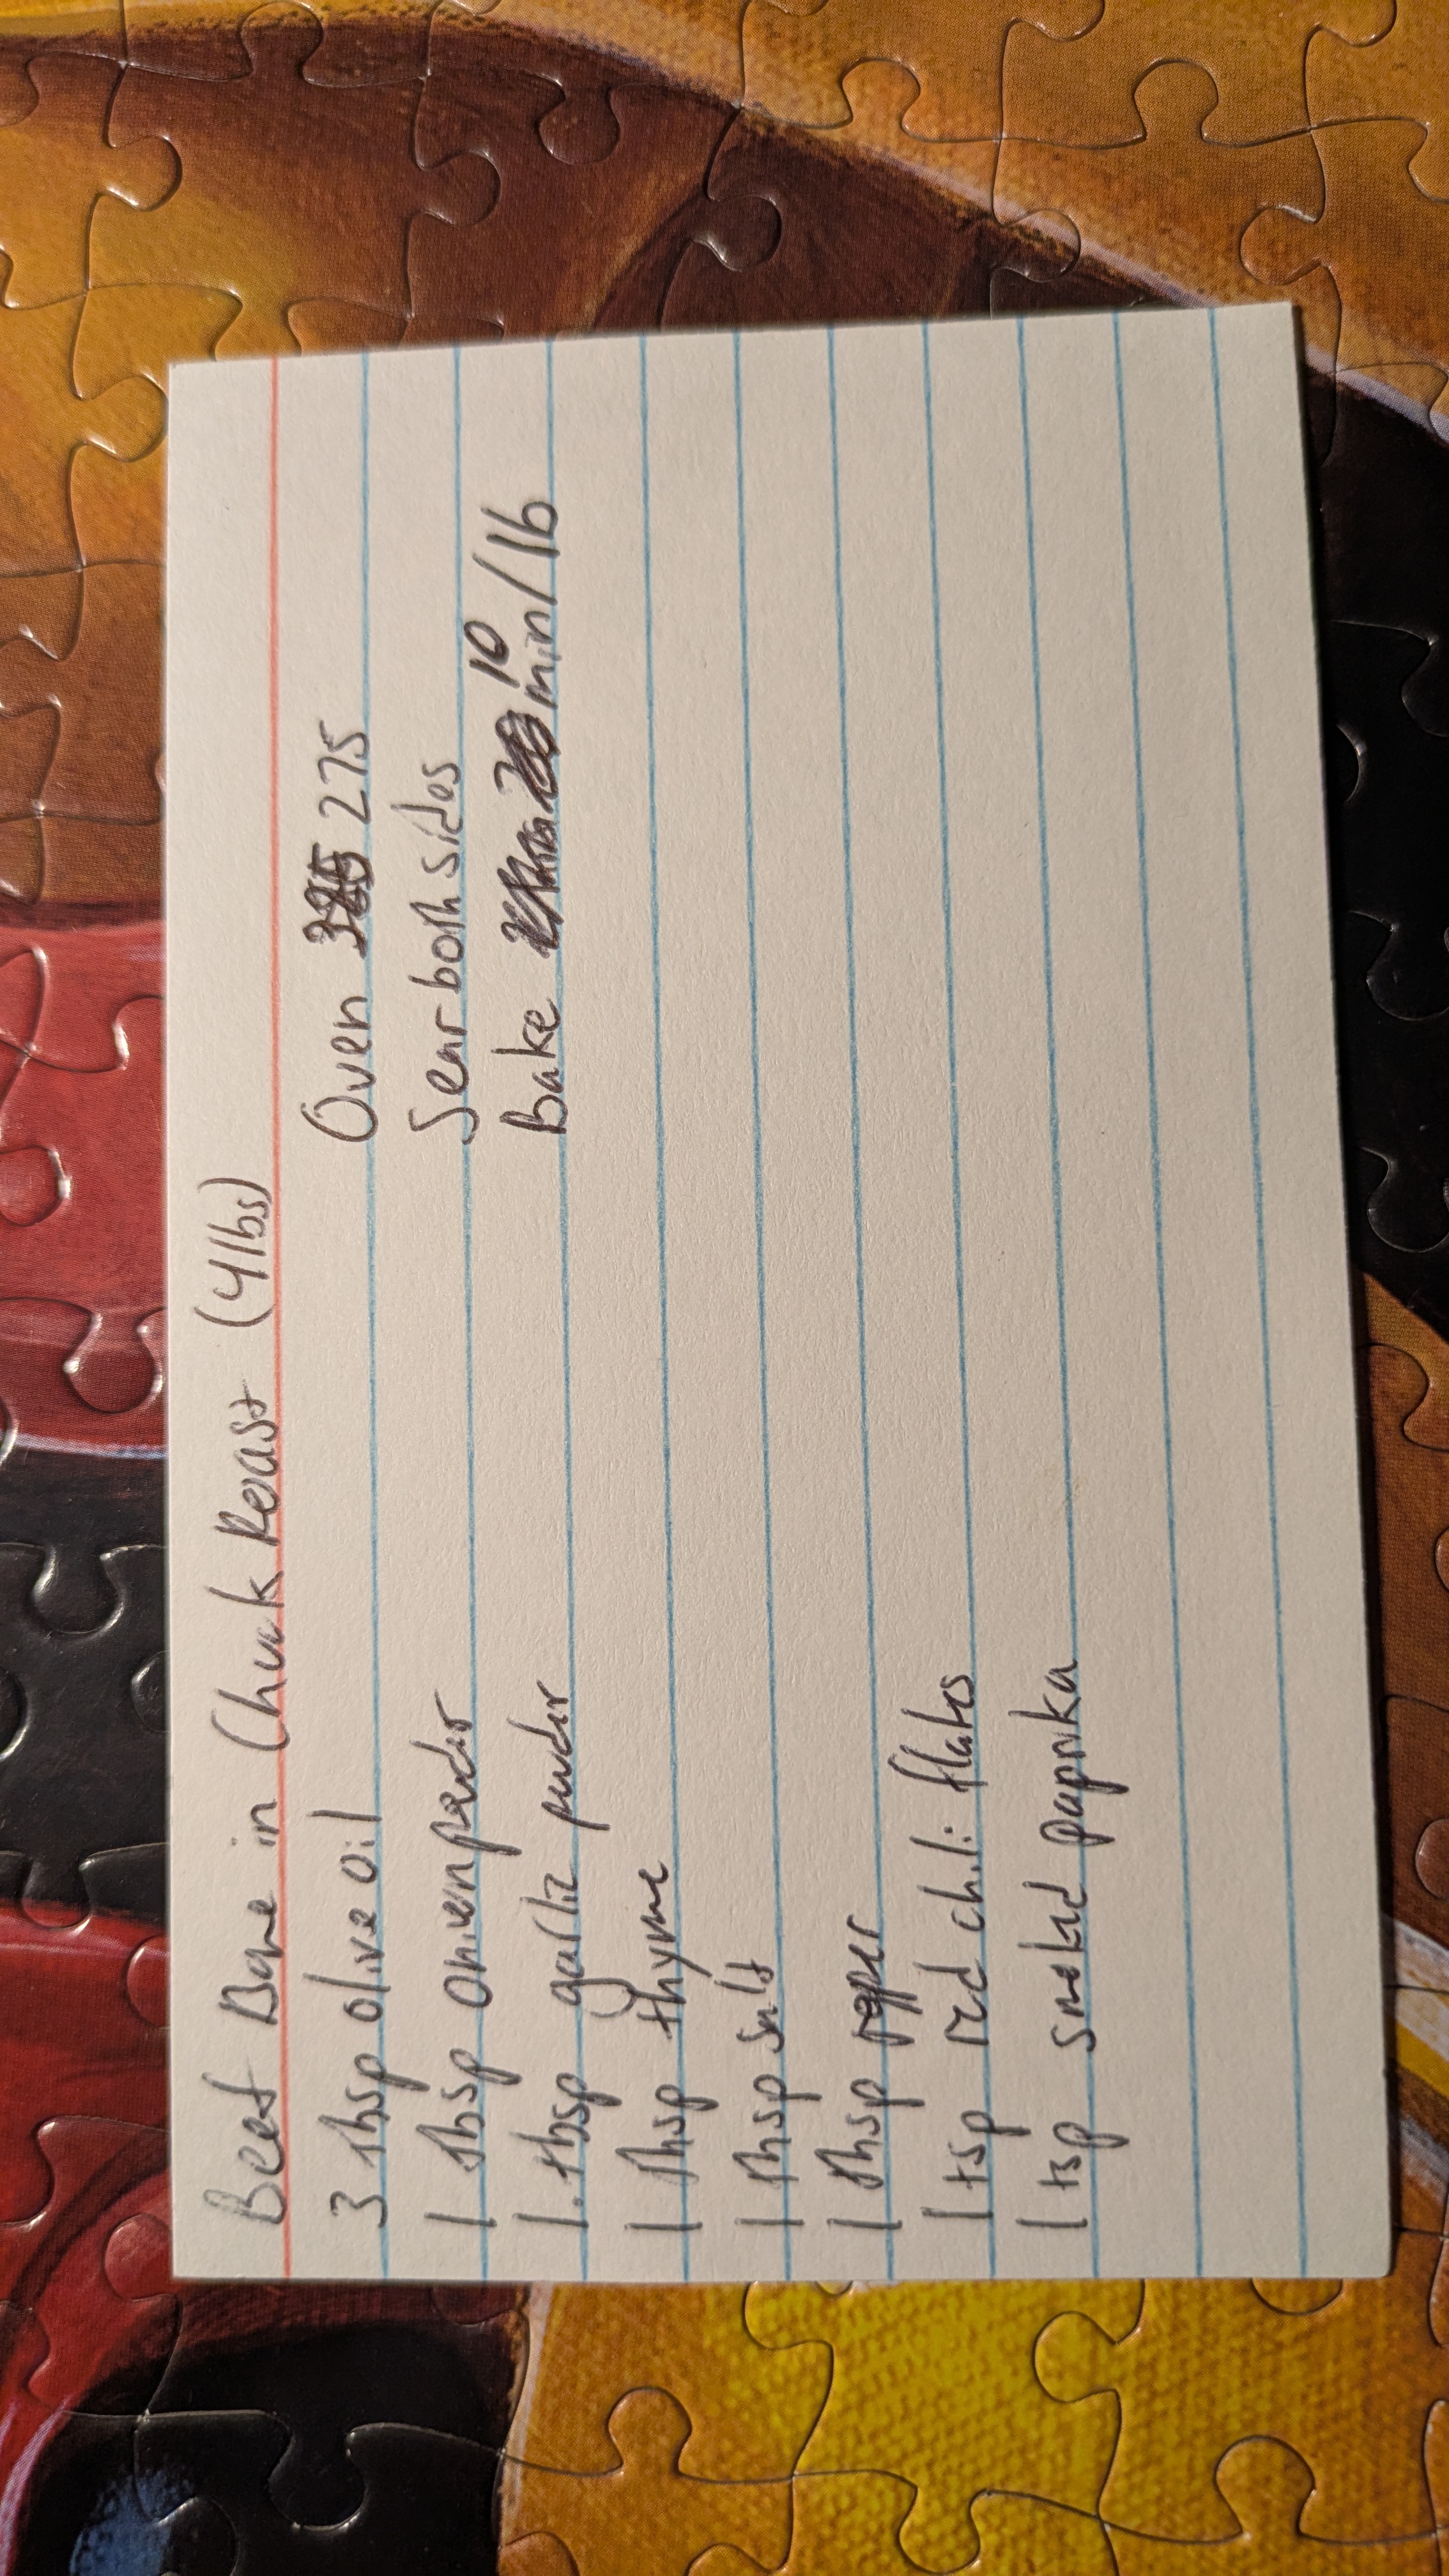 Beef Bone in Chuck Roast (4lbs)
3 Tbsp olive oil
1 Tbsp onion powder
1. tbsp garlic powder
1 Tbsp thyme
1 Tbsp salt
1 Tbsp pepper
1 tsp red chili flakes
1 tsp smoked paprika
Oven 275
Sear both sides
Bake 10 min/lb